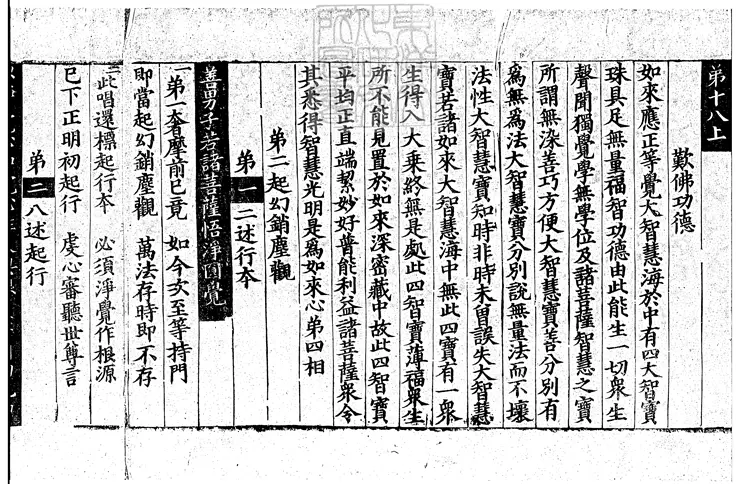 第十八上
歎佛功德
如來應正等覺大智慧海於中有四大智寶
珠具足無量福智功德由此能生一切衆生
聲聞獨覺學無學位及諸菩薩智慧之寶
所謂無染善巧方便大智慧寶善分別有
爲無爲法大智慧寶分別說無量法而不壞
法性大智慧寶知時非時未曽誤失大智慧
寶若諸如來大智慧海中無此四寶有一衆
生得入大乗終無是處此四智寶薄福衆生
所不能見置於如來深密藏中故此四智寶
平均正直端絜妙好普能利益諸菩薩衆令
其悉得智慧光明是爲如來心第四相
第二起幻銷塵觀
第一 二述行本
善男子若諸菩薩悟淨圓覺
第一奢摩前已竟 如今次至等持門
即當起幻銷塵觀 萬法存時即不存
此唱還標起行本 必須淨覺作根源
已下正明初起行 虔心審聽世尊言
第二 八述起行